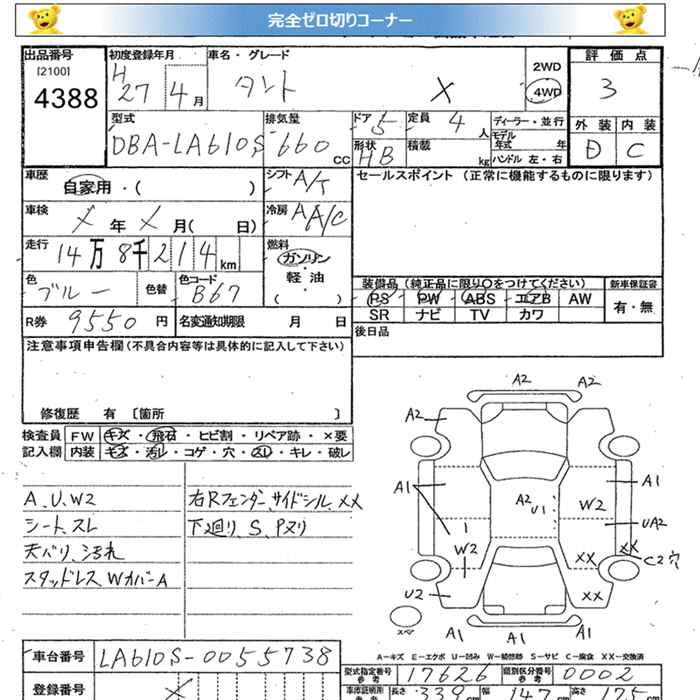 完全ゼロ切りコーナー
出品番号 初度登録年月 車名・グレード 2WD 評価点
[2100] H 27 4 月 タント X 4WD 3
4388
型式 排気量 ドア 5 定員 4 人 ディーラー・並行 外装 内装
DBA-LA610S 660 CC 形状 HB 積載 kg モデル年式 年 D C
ハンドル 左・右
車歴 自家用・( ) シフト A/T セールスポイント(正常に機能するものに限ります)
車検 X 年 X 月( 日) 冷房 A A/C
走行 14 万 8 千 2 1 4 km 燃料 ガソリン・軽油・( )
色 ブルー 色替 色コード B67 装備品(純正品に限り○をつけてください) 新車保証書
PS PW ABS エアB AW 有・無
R券 9550 円 名変通知期限 月 日 SR ナビ TV カワ
注意事項申告欄(不具合内容等は具体的に記入して下さい) 後日品
修復歴 有 [箇所 ]
検査員 FW キズ・飛石・ヒビ割・リペア跡・×要
記入欄 内装 キズ・汚レ・コゲ・穴・スレ・キレ・破レ
A、U、W2 右Rフェンダー、サイドシル、XX
シート、スレ 下廻り、S、Pヌリ
天バリ、汚れ
スタッドレス WカバーA
A2 A2
A2
A1 A1
A2 U1 W2
1 UA2
W2 XX XX
C2穴
U2 XX
スペア A1 A1 A1
A-キズ E-エクボ U-凹み W-補修跡 S-サビ C-腐食 XX-交換済
車台番号 LA610S-0055738 型式指定番号 17626 類別区分番号 0002
登録番号 X 長さ 339 cm 幅 147 cm 高さ 175 cm